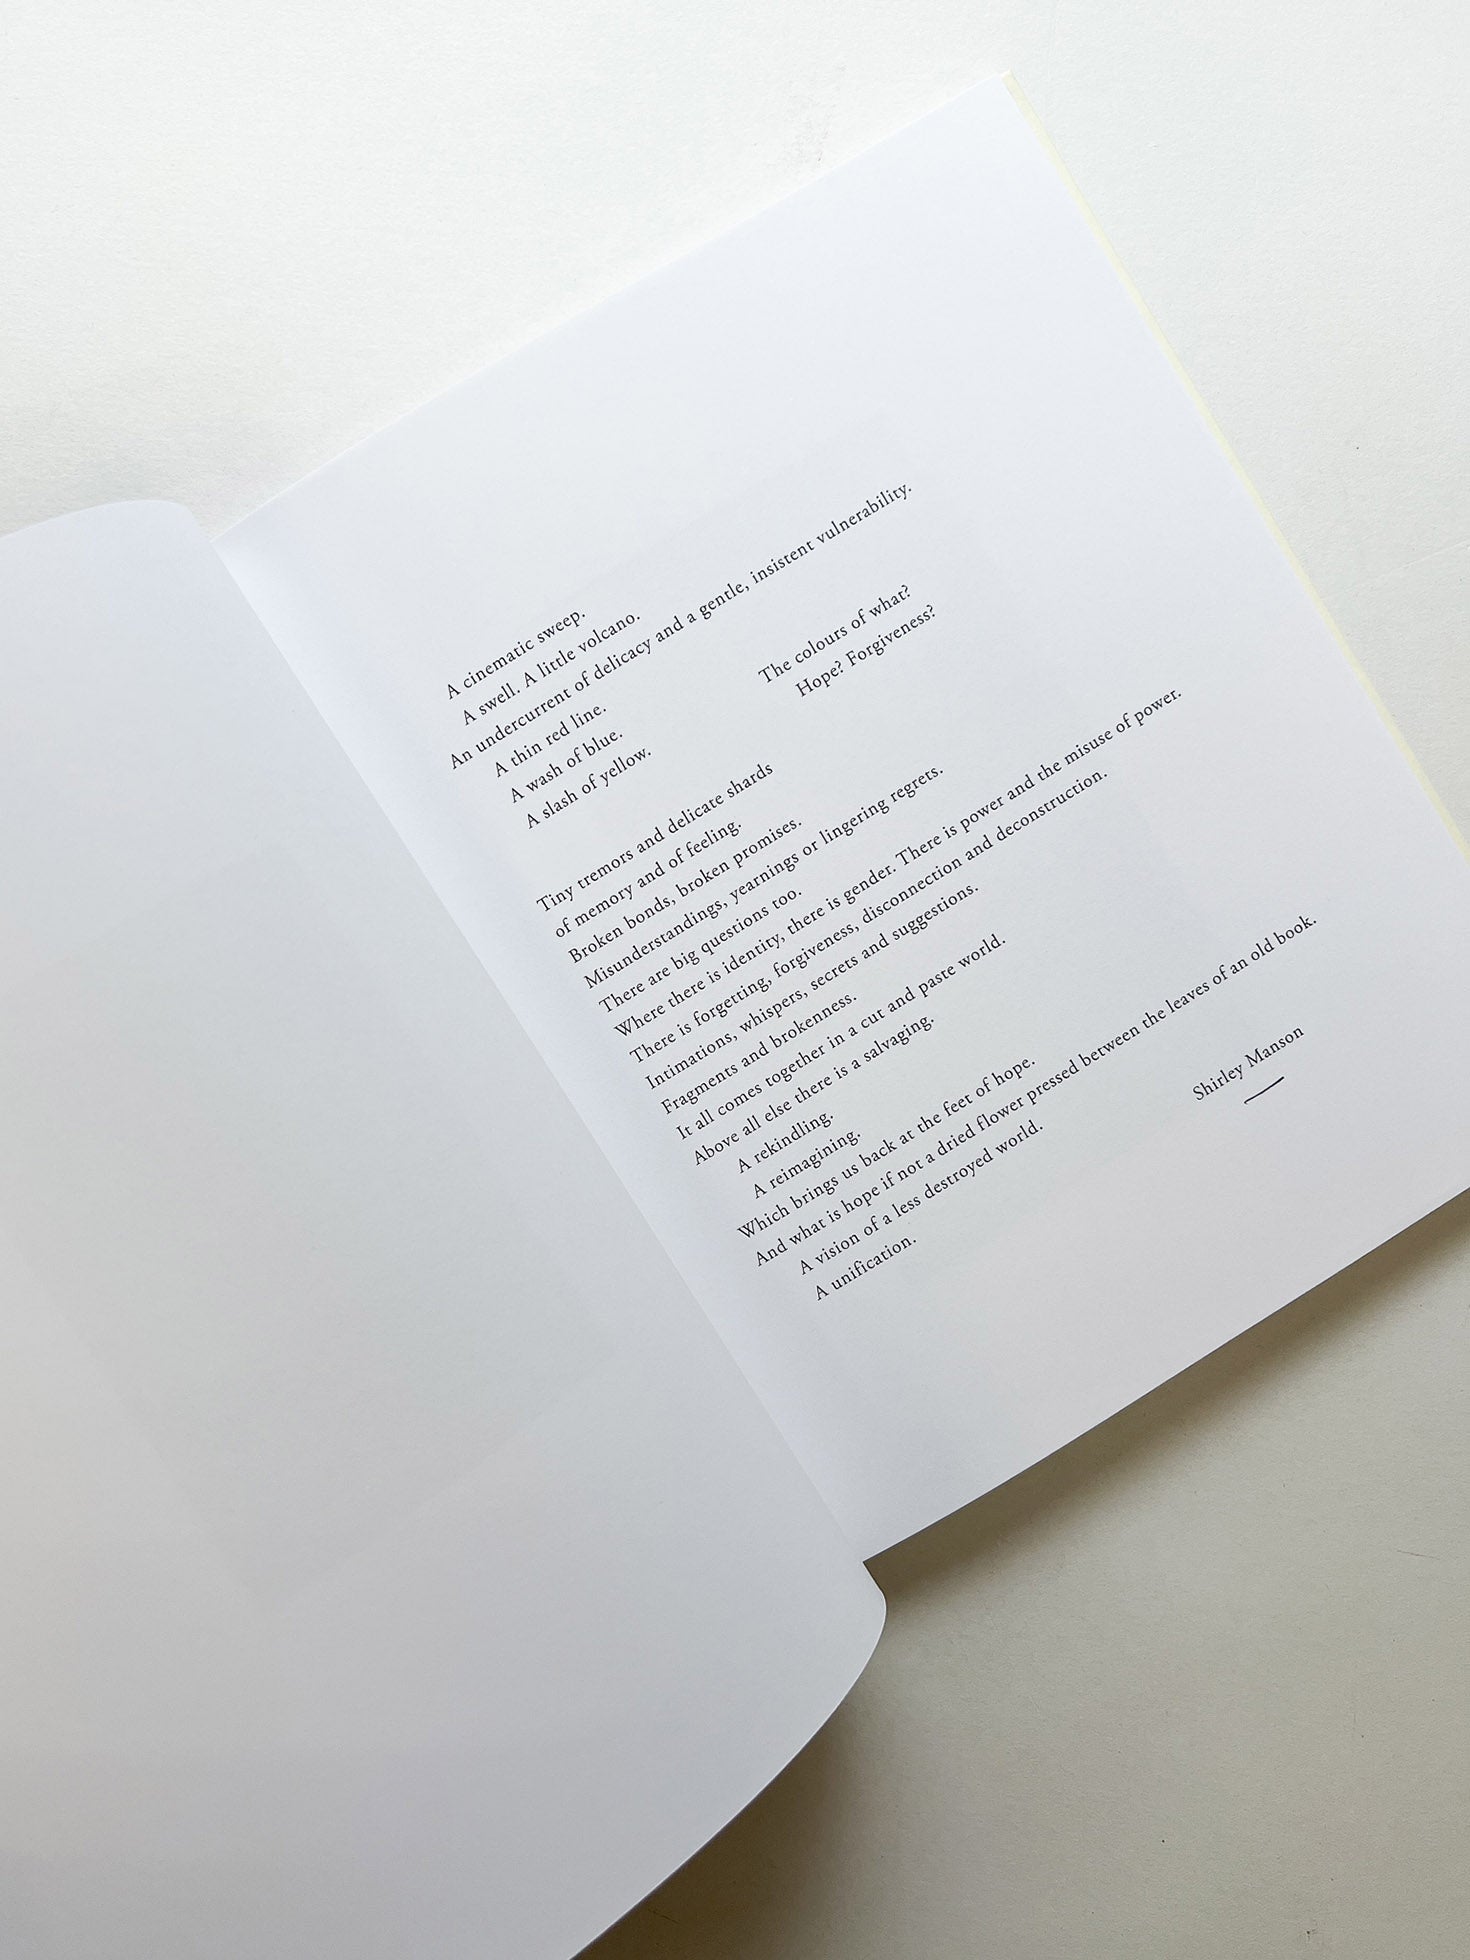 A cinematic sweep.
A swell. A little volcano.
An undercurrent of delicacy and a gentle, insistent vulnerability.
A thin red line.
A wash of blue.
A slash of yellow.
The colours of what?
Hope? Forgiveness?
Tiny tremors and delicate shards
of memory and of feeling.
Broken bonds, broken promises.
Misunderstandings, yearnings or lingering regrets.
There are big questions too.
Where there is identity, there is gender. There is power and the misuse of power.
There is forgetting, forgiveness, disconnection and deconstruction.
Intimations, whispers, secrets and suggestions.
Fragments and brokenness.
It all comes together in a cut and paste world.
Above all else there is a salvaging.
A rekindling.
A reimagining.
Which brings us back at the feet of hope.
And what is hope if not a dried flower pressed between the leaves of an old book.
A vision of a less destroyed world.
A unification.
Shirley Manson